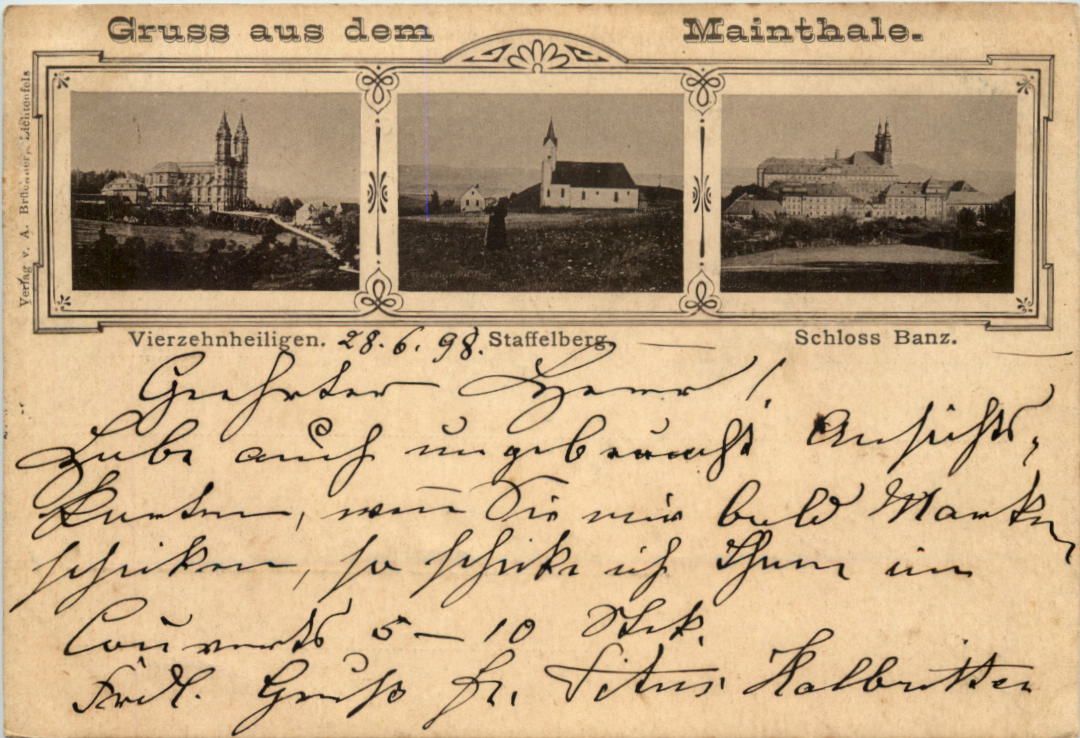 Gruss aus dem Mainthale.
Verlag v. A. Brückner, Lichtenfels
Vierzehnheiligen. 28.6.98. Staffelberg. Schloss Banz.
Geehrter Herr!
Habe auch ungebraucht Ansichts-
karten, wenn Sie mir bald Marken
schicken, so schicke ich Ihnen im
Couverts 5–10 Stck.
Frdl. Gruß Fr. Titus Halbritter